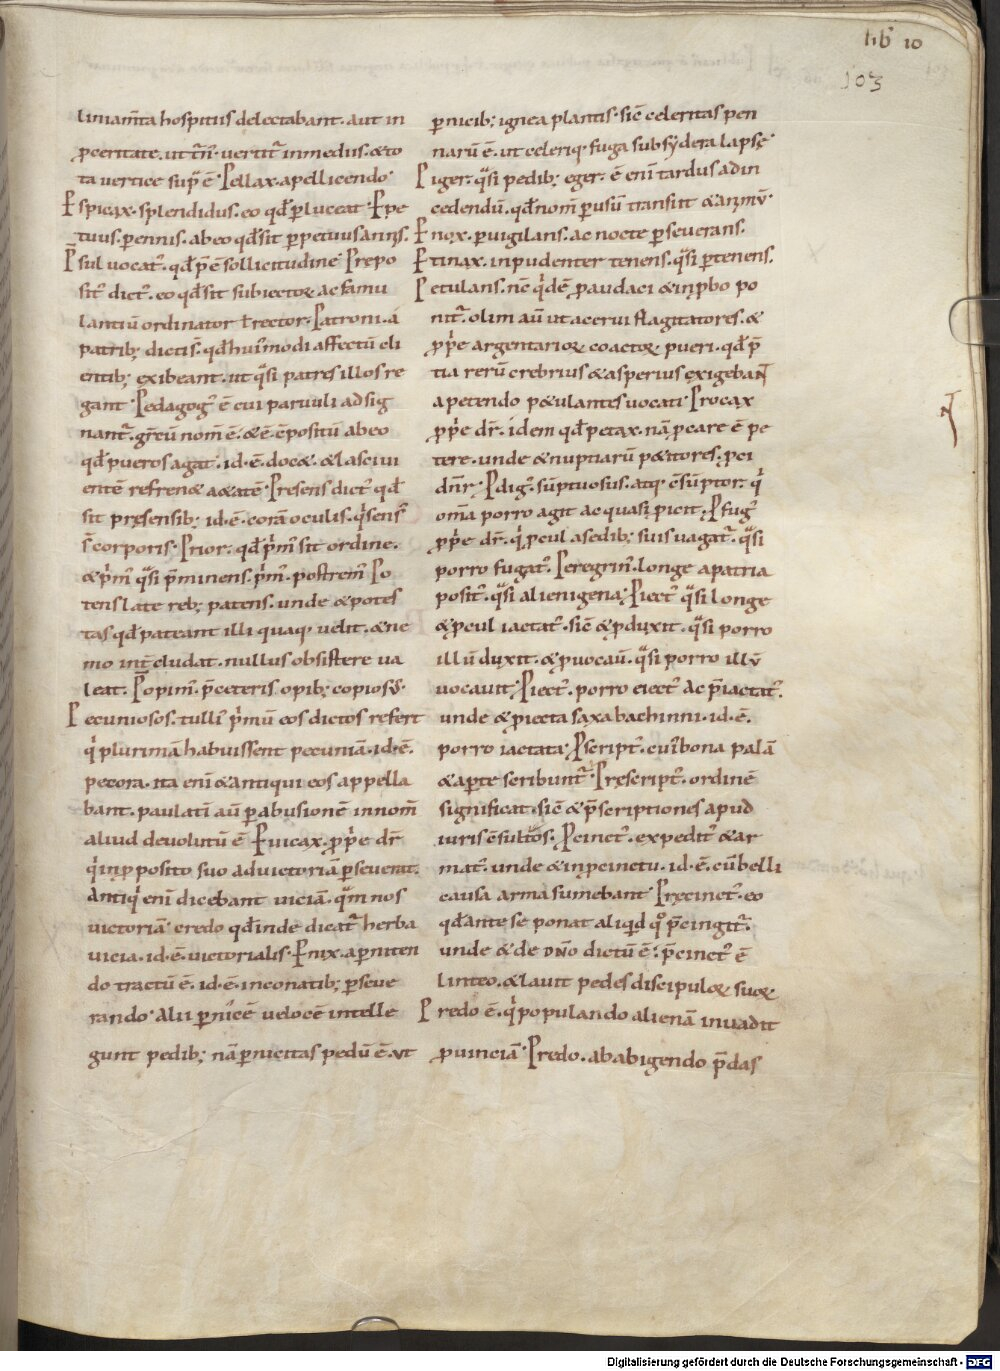 lib 10
103
liniam̄ta hospitus delectabant. aut in
ꝓceritate. ut tn̄. vertit᷑ in medus. & to
ta vertice sup̄ ē. Pellax. a pelliciendo.
Pspicax. splendidus. eo qd̄ ꝑluceat. Ppe
tuus. ꝑennis. ab eo qd̄ sit ꝑpetuus annis.
P̄sul vocat᷑. qd̄ p̄ ē sollicitudine. Prepo
sit᷑ dict᷑. eo qd̄ sit subiectoꝝ ac famu
lantiū ordinator ł rector. Patroni. á
patrib; dictis. qd̄ hui᷑modi affectū cli
entib; exibeant. ut q̄si patres illos re
gant. Pedagog᷑ ē cui paruuli adsig
nant᷑. grecū nom̄ ē. & ē c̄positū ab eo
qd̄ pueros agat. id. ē. doc&. & lasciui
entē refren& a&atē. Presens dict᷑ qd̄
sit pręsensib; id. ē. corā oculis. q̇ sens᷑
s̄ corporis. Prior. qd̄ ṗm᷑ sit ordine.
& ṗm᷑ q̄si p̄minens. ṗm᷑. postrem᷑. Po
tens late reb; patens. unde & potes
tas qd̄ pateant illi quaq. velit. & ne
mo int̄cludat. nullus obsistere va
leat. P̄opim᷑. p̄ ceteris opib; copios᷑.
Pecuniosos. tulli᷑ ṗmū eos dictos refert
q̇ plurimā habuissent pecuniā. id. ē.
pecora. ita eni᷑ & antiqui eos appella
bant. paulatī aū ꝑ abusionē in nom̄
aliud devolutū ē. Puicax. ꝓṗe dr̄
q̇ in ꝓposito suo ad victoriā ꝑseuerat.
Antiq̇ eni᷑ dicebant viciā. q̄m nos
victoriā. credo qd̄ inde dicat᷑ herba
vicia. id. ē. victorialis. Pnix. a ꝑniten
do tractū ē. id. ē. in conatib; ꝑseue
rando. Alii ꝑnicē velocē intelle
gunt pedib; nā ꝑnicitas pedū ē. ut
ꝑnicib; ignea plantis. sic̄ celeritas pen
narū ē. ut celeriq. fuga sub sydera lapsę.
Piger. q̄si pedib; eger. ē eni᷑ tardus ad in
cedendū. qd̄ nom̄ ꝑ usū transiit & animū.
Pnox. ꝑuigilans. ac nocte ꝑseverans.
Ptinax. inpudenter tenens. q̄si ꝑtenens.
Petulans. nc̄ q̇dē ꝓ audaci & inꝓbo po
nit᷑. olim aū ut acerui flagitatores. &
ꝓṗe argentarioꝝ coactoꝝ pueri. qd̄ p̄
tia rerū crebrius & asperius exigebant
a petendo p&ulantes vocati. Procax
ꝓṗe dr̄. idem qd̄ petax. nā ꝓcare ē pe
tere. unde & nuptiarū p&itores. ꝓci
dn̄r. Pdig᷑. sūptuosus. atq. c̄sūptor. q̇
om̄a porro agit ac quasi ꝓicit. Pfug᷑
ꝓṗe dr̄. q̇ ꝓcul a sedib; suis vagat᷑. q̄si
porro fugat᷑. Peregrin᷑. longe a patria
posit᷑. q̄si alienigena. Piect᷑ q̄si longe
& ꝓcul iactat᷑. sic̄ & ꝓduxit. q̄si porro
illū duxit. & ꝓvocaū. q̄si porro illū
vocavit. Piect᷑. porro eiect᷑ ac p̄iactat᷑.
unde & ꝓiecta saxa bachinni. id. ē.
porro iactata. Pscript᷑. cui᷑ bona palā
& aꝑte scribunt᷑. Pręscript᷑. ordinē
significat. sic̄ & p̄scriptiones apud
iuris c̄sultos. Pcinct᷑. expedit᷑ & ar
mat᷑. unde & in ꝓcinctu. id. ē. cū belli
causa arma sumebant. Pręcinct᷑. eo
qd̄ ante se ponat aliqd̄ qº p̄cingit᷑.
unde & de dn̄o dictū ē. p̄cinct᷑ ē
linteo. & lauit pedes discipuloꝝ suoꝝ
Predo ē. q̇ populando alienā invadit
ꝓuinciā. Predo. ab abigendo p̄das
Digitalisierung gefördert durch die Deutsche Forschungsgemeinschaft - DFG